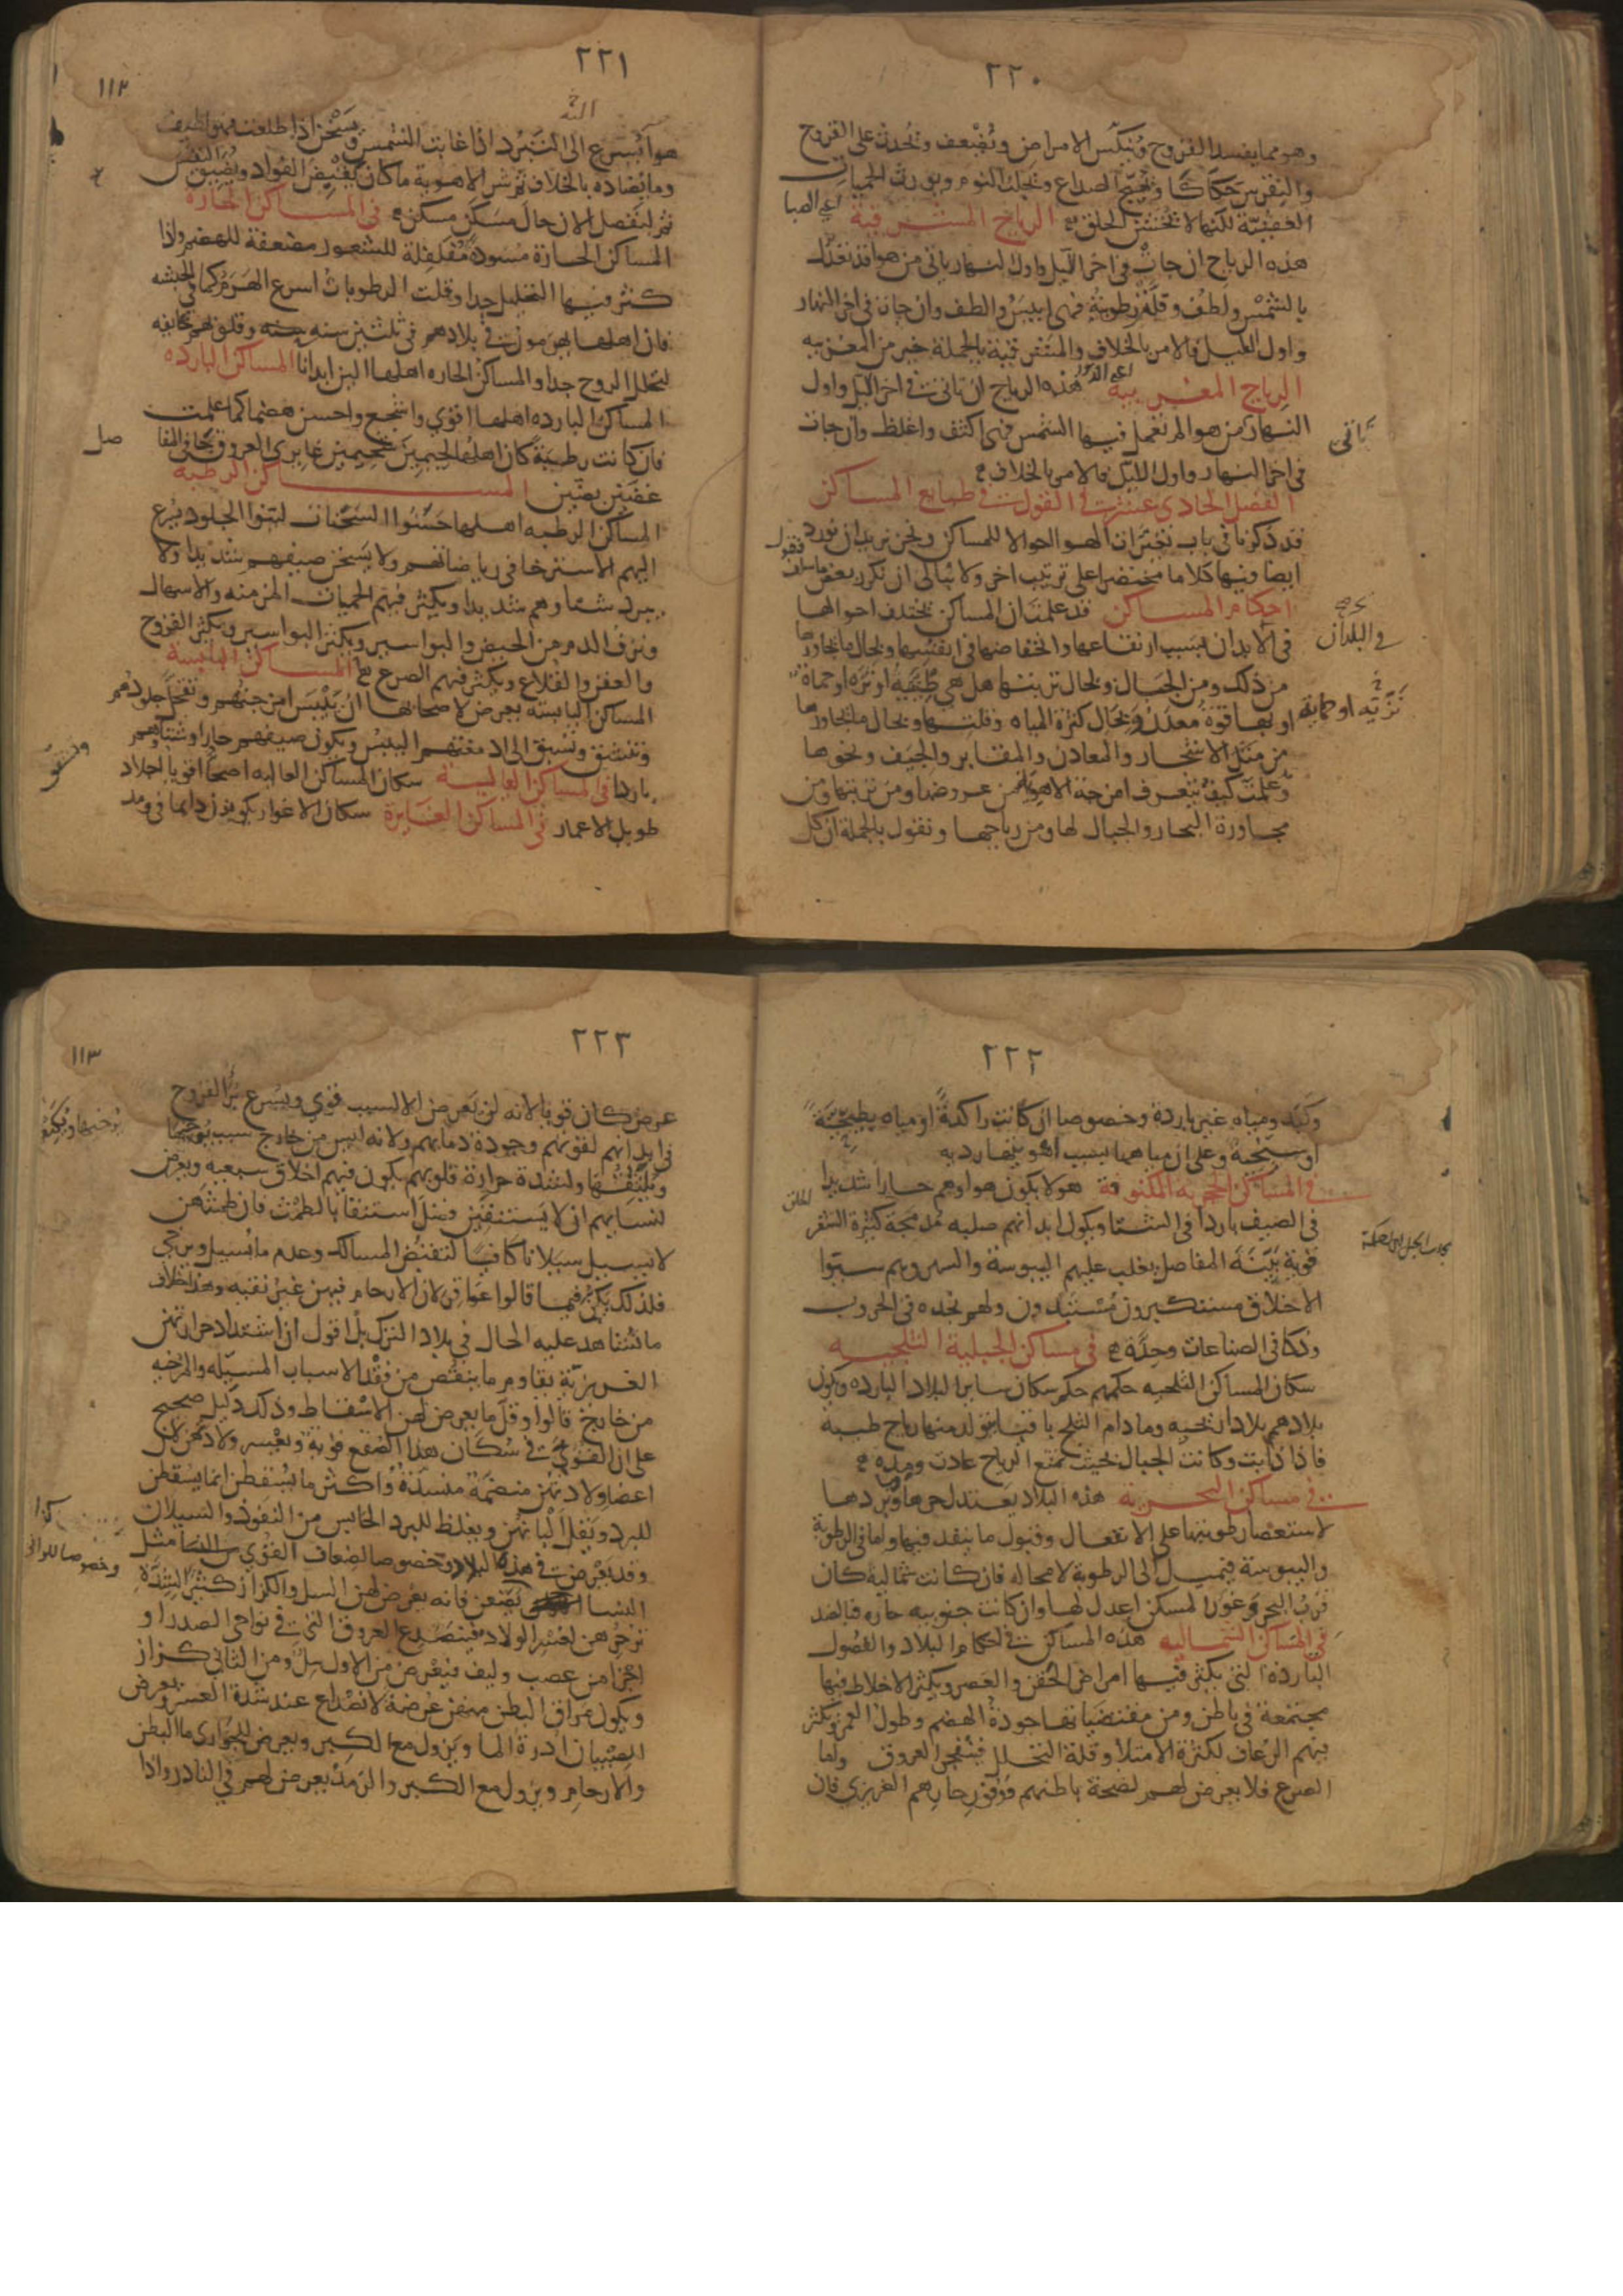 ٢٢٠
وهو مما يفسد القروح وينكس الامراض ويضعف ويحدث على القروح
والنقرس حكاكا ويهيج الصداع ويجلب النوم ويورث الحميات
العفنية لكنها لا تخشن الحلق الرياح المشرقية اعني الصبا
هذه الرياح ان جات في اخر الليل واول النهار ياتي من هوا قد تعدل
بالشمس ولطف وقلت رطوبته فهى ايبس والطف وان جات في اخر النهار
واول الليل فالامر بالخلاف والمشرقية بالجملة خير من المغربيه
الرياح المغربية اعني الدبور هذه الرياح ان تاتي في اخر الليل واول
النهار من هوا لم تعمل فيها الشمس فهى اكثف واغلظ وان جات
تاتي
في اخر النهار واول الليل فالامر بالخلاف
الفصل الحادي عشر في القول في طبايع المساكن
قد ذكرنا في باب تغيرات الهوا احوالا للمساكن ونحن نريد ان نورد
ايضا فيها كلاما مختصرا على ترتيب اخر ولا نبالي ان نكرر بعض ما سلف فنقول
احكام المساكن قد علمت ان المساكن يختلف احوالها
في الابدان بسبب ارتفاعها وانخفاضها في انفسها ولحال ما يجاورها
في البلدان
من ذلك ومن الجبال ولحال تربتها هل هي طينية او نزه او حماة
نزية او حماية
او بها قوة معدن ولحال كثرة المياه وقلتها ولحال ما يجاورها
من مثل الاشجار والمعادن والمقابر والجيف ونحوها
وعلمت كيف يتعرف امزجة الاهوية من عروضها ومن تربتها ومن
مجاورة البحار والجبال لها ومن رياحها ونقول بالجملة ان كل
٢٢١
١١٢
هوا يسرع الى التبرد اذا غابت الشمس ويسخن اذا طلعت فهو لطيف
وما يضاده بالخلاف ثم شر الاهوية ما كان يقبض الفواد ويضيق النفس
ثم لنفصل الان حال مسكن مسكن في المساكن الحارة
المساكن الحارة مسودة مفلفلة للشعور مضعفة للهضم واذا
كثر فيها التحليل جدا وقلت الرطوبات اسرع الهرم كما في الحبشه
فان اهلها يهرمون في بلادهم في ثلثين سنه وقلوبهم خايفه
لتحلل الروح جدا والمساكن الحاره اهلها الين ابدانا المساكن البارده
المساكن البارده اهلها اقوي واشجع واحسن هضما كما علمت
فان كانت رطبة كان اهلها لحيمين شحيمين غايري العروق جافي المفا
صل
غضين بضين المساكن الرطبة
المساكن الرطبه اهلها حسنوا السحنات لينوا الجلود يسرع
اليهم الاسترخا في رياضاتهم ولا يسخن صيفهم شديدا ولا
يبرد شتاوهم شديدا ويكثر فيهم الحميات المزمنه والاسهال
ونزف الدم من الحيض والبواسير ويكثر البواسير ويكثر القروح
والعفن والقلاع ويكثر فيهم الصرع المساكن اليابسة
المساكن اليابسه يعرض لاصحابها ان تيبس امزجتهم وتقحل جلودهم
وتتشقق وتسبق الى ادمغتهم اليبس ويكون صيفهم حارا وشتاوهم
باردا في المساكن العالية سكان المساكن العاليه اصحا اقويا اجلاد
طويلو الاعمار في المساكن الغايرة سكان الاغوار يكونون دايما في ومد
٢٢٢
وكمد ومياه غير باردة وخصوصا ان كانت راكدة او مياه بطيحية
او سبخية وعلى ان مياهها بسبب اهويتها رديه
في المساكن الحجريه المكشوفة هولا يكون هواوهم حارا شديدا
في الصيف باردا في الشتا ويكون ابدانهم صلبه مدمجة كثيرة الشعر
قوية بينة المفاصل يغلب عليهم اليبوسة والسهر وهم سيئوا
الاخلاق مستكبرون مستبدون ولهم نجده في الحروب
وذكا في الصناعات وحدة في مساكن الجبلية الثلجيه
سكان المساكن الثلجيه حكمهم حكم سكان ساير البلاد البارده ويكون
بلادهم بلادا ريحيه وما دام الثلج باقيا يتولد منها رياح طيبه
فاذا ذابت وكانت الجبال بحيث تمنع الرياح عادت ومده
في مساكن البحرية هذه البلاد يعتدل حرها وبردها
لاستعصا رطوبتها على الانفعال وقبول ما ينفد فيها واما في الرطوبة
واليبوسة فيميل الى الرطوبة لا محاله فان كانت شمالية كان
قرب البحر وغور المسكن اعدل لها وان كانت جنوبيه حاره فبالضد
في المساكن الشماليه هذه المساكن في احكام البلاد والفصول
البارده التي يكثر فيها امراض الحقن والعصر ويكثر الاخلاط فيها
مجتمعة في باطن ومن مقتضياتها جودة الهضم وطول العمر ويكثر
فيهم الرعاف لكثرة الامتلا وقلة التحلل فيتفجر العروق واما
الصرع فلا يعرض لهم لصحة باطنهم ووفور حارهم الغريزي فان
٢٢٣
١١٣
عرض كان قويا لانه لن يعرض الا لسبب قوي ويسرع برا القروح
في ابدانهم لقوتهم وجودة دمايهم ولانه ليس من خارج سبب يرخيها
ويلينها ولشدة حرارة قلوبهم يكون فيهم اخلاق سبعيه ويعرض
لنسايهم ان لا يستنقين فضل استنقا بالطمث فان طمثهن
لا يسيل سيلانا كافيا لتقبض المسالك وعدم ما يسيل ويرخي
فلذلك يكن فيما قالوا عواقر لان الارحام فيهن غير نقيه وهذا خلاف
ما نشاهد عليه الحال في بلاد الترك بل اقول ان اشتداد حرارتهن
الغريزية يقاوم ما ينقص من فقد الاسباب المسيله والمرخيه
من خارج قالوا وقل ما يعرض لهن الاسقاط وذلك دليل صحيح
على ان القوي في سكان هذا الصقع قوية ويعسر ولادهن لان
اعضا ولادتهن منضمة منسدة واكثر ما يسقطن انما يسقطن
للبرد وتقل البانهن ويغلظ للبرد الحابس من النفوذ والسيلان
وقد يعرض في هذه البلاد وخصوصا لضعاف القوي مثل
وخصوصا للواتي
النسا يضعن فانه يعرض لهن السل والكزاز كثيرا لشدة
تزحرهن لعسر الولاد فينصدع العروق التي في نواحي الصدر او
اجزا من عصب وليف فيعرض من الاول سل ومن الثاني كزاز
ويكون مراق البطن منهن عرضة لانصداع عند شدة العسر ويعرض
للصبيان ادرة الما ويزول مع الكبر ويعرض للجواري ما البطن
والارحام ويزول مع الكبر والرمد يعرض لهم في النادر واذا